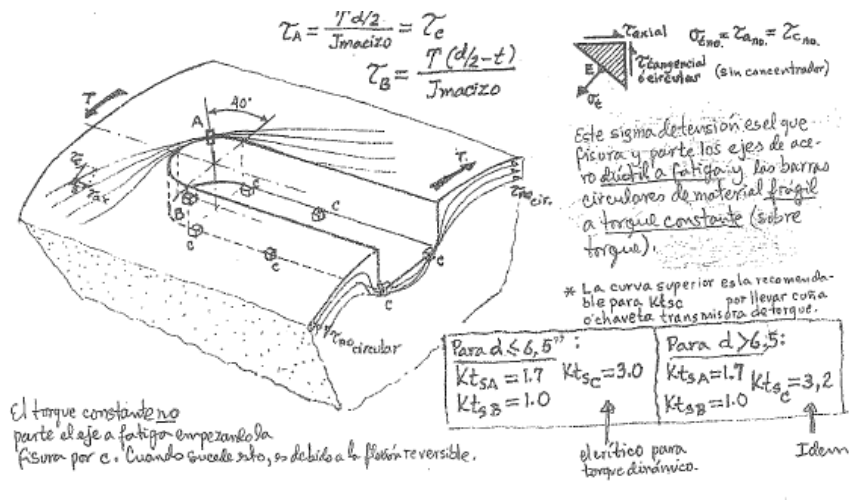 τA = T d/2 / Jmacizo = τc
τB = T (d/2 - t) / Jmacizo
τaxial
σt no. = τa no. = τc no.
E
τtangencial
ó circular
(sin concentrador)
σt
T
A
40°
T
Este sigma de tensión es el que
fisura y parte los ejes de ace-
ro dúctil a fatiga y las barras
circulares de material frágil
a torque constante (sobre
torque).
τno cir.
B
C
C
C
C
C
C
τno circular
* La curva superior es la recomenda-
ble para Ktsc por llevar cuña
o chaveta transmisora de torque.
Para d ≤ 6,5" :
KtSA = 1.7 KtSC = 3.0
KtSB = 1.0
Para d > 6,5:
KtSA = 1.7 KtSC = 3,2
KtSB = 1.0
El torque constante no
parte el eje a fatiga empezando la
fisura por c. Cuando sucede esto, es debido a la flexión reversible.
el crítico para
torque dinámico.
Idem